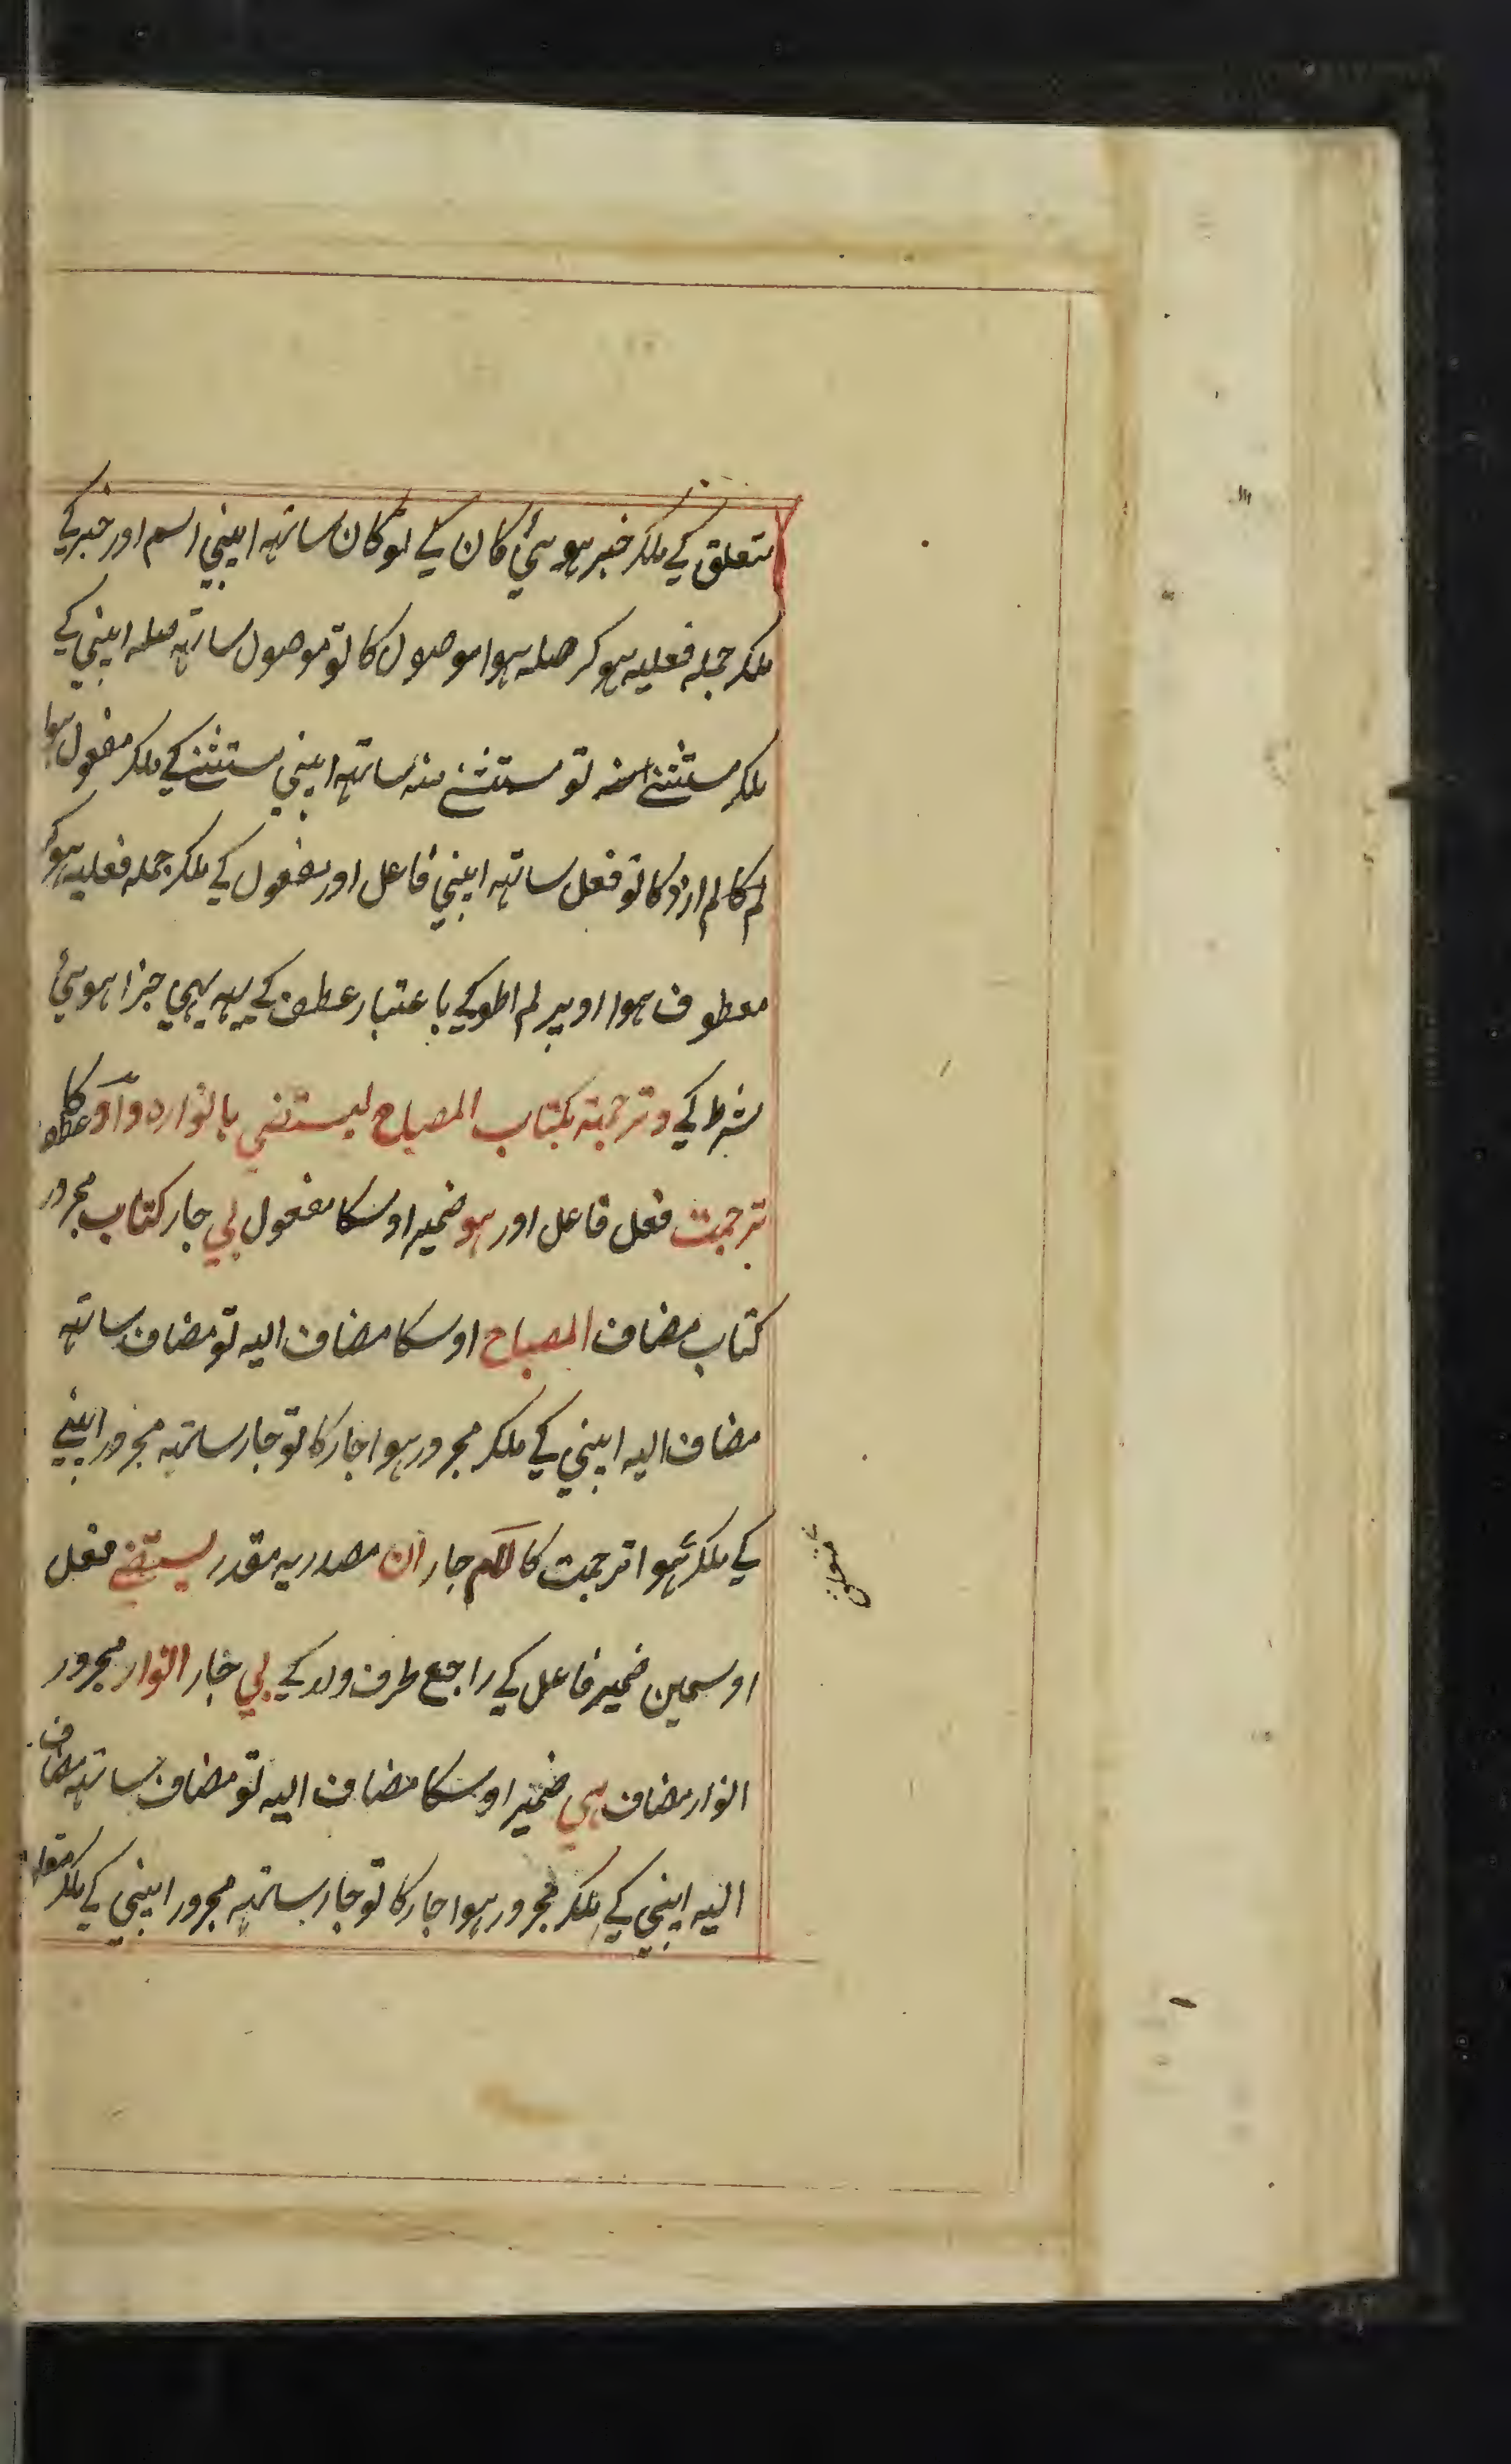 متعلق کے ملکر خبر ہوئی کان کے تو کان ساتہہ اپنی اسم اور خبر کے
ملکر جملہ فعلیہ ہو کر صلہ ہوا موصول کا تو موصول ساتہہ صلہ اپنی کے
ملکر مستثنے منہ تو مستثنے منہ ساتہہ اپنی مستثنے کے ملکر مفعول ہوا
لم کا لم ازد کا تو فعل ساتہہ اپنی فاعل اور مفعول کے ملکر جملہ فعلیہ ہو کر
معطوف ہوا اوپر لم اطو کے با عتبار عطف کے یہہ بہی جزا ہوئی
شرط کے و ترجمتہ بکتاب المصباح لیستضی بانوارہ واو عطف کا
ترجمت فعل فاعل اور ہو ضمیر اوسکا مفعول بی جار کتاب مجرور
کتاب مضاف المصباح اوسکا مضاف الیہ تو مضاف ساتہہ
مضاف الیہ اپنی کے ملکر مجرور ہوا جار کا تو جار ساتہہ مجرور اپنے
کے ملکر ہوا ترجمت کا لام جار ان مصدریہ مقدر یستضے فعل
متعلق
اوسمین ضمیر فاعل کے راجع طرف ولد کے بی جار انوار مجرور
انوار مضاف ہی ضمیر اوسکا مضاف الیہ تو مضاف ساتہہ مضاف
الیہ اپنی کے ملکر مجرور ہوا جار کا تو جار ساتہہ مجرور اپنی کے ملکر متعلق